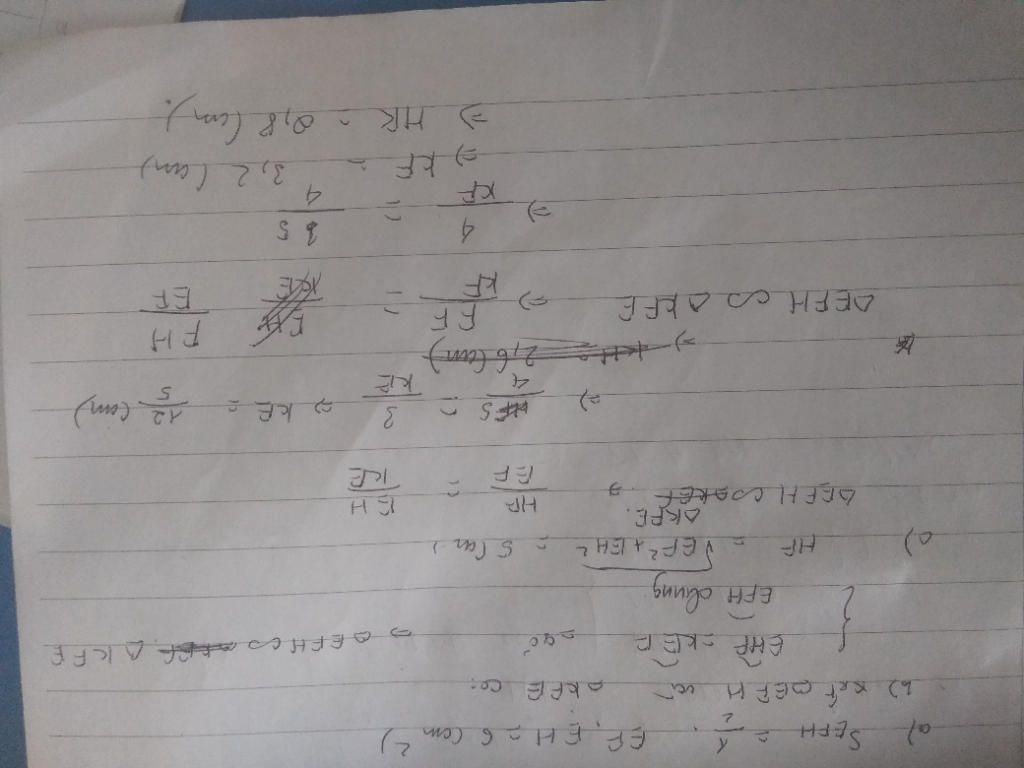 a) S_EFH = 1/2 . EF. EH = 6 (cm²)
b) xét △EFH và △KFE có:
{ EHF = KEF = 90° ⇒ △EFH ∽ △KFE
EFH chung
c) HF = √EF²+EH² = 5 (cm)
△EFH ∽ △KEF △KFE. ⇒ HF/EF = EH/KE
⇒ 5/4 = 3/KE ⇒ KE = 12/5 (cm)
⇒ KH = 2,6 (cm)
△EFH ∽ △KFE ⇒ EF/KF = EH/KE FH/EF
⇒ 4/KF = 5/4
⇒ KF = 3,2 (cm)
⇒ HK = 0,8 (cm).